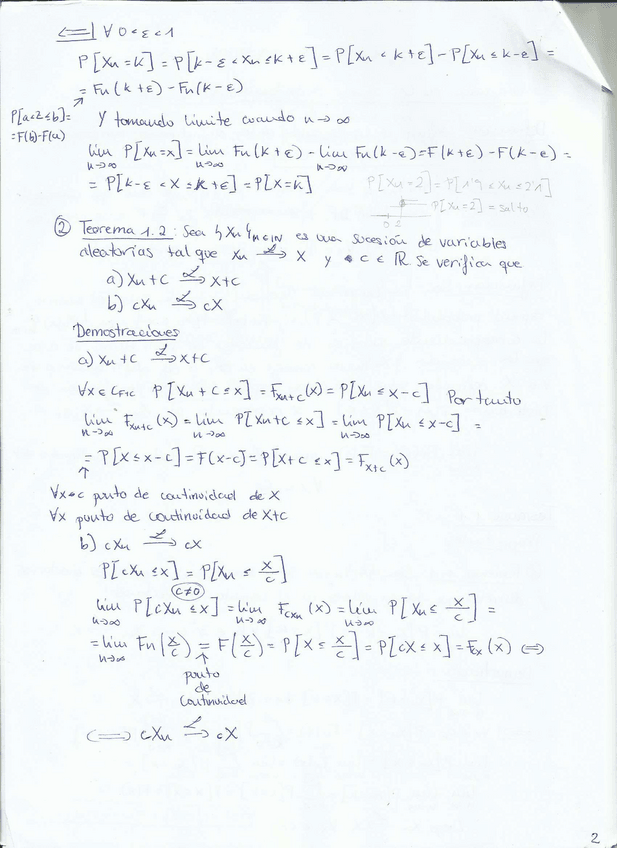 ⇐| ∀ 0 < ε < 1
P[Xn = k] = P[k-ε < Xn ≤ k+ε] = P[Xn < k+ε] - P[Xn ≤ k-ε] =
= Fn(k+ε) - Fn(k-ε)
P[a<Z≤b]=
=F(b)-F(a)
Y tomando límite cuando n→∞
lim n→∞ P[Xn=x] = lim n→∞ Fn(k+ε) - lim n→∞ Fn(k-ε) = F(k+ε) - F(k-ε) =
= P[k-ε < X = k+ε] = P[X=k]
P[Xn=2] = P[1'9 < Xn ≤ 2'1]
P[Xn=2] = salto
0 2
② Teorema 1.2: Sea {Xn}n∈IN es una sucesión de variables
aleatorias tal que Xn →^L X y c ∈ ℝ Se verifica que
a) Xn + c →^L X+c
b) cXn →^L cX
Demostraciones
a) Xn + c →^L X+c
∀x ∈ C_F+c P[Xn + c ≤ x] = F_Xn+c(x) = P[Xn ≤ x-c] Por tanto
lim n→∞ F_Xn+c(x) = lim n→∞ P[Xn+c ≤ x] = lim n→∞ P[Xn ≤ x-c] =
= P[X ≤ x-c] = F(x-c) = P[X+c ≤ x] = F_X+c(x)
↑
∀x-c punto de continuidad de X
∀x punto de continuidad de X+c
b) cXn →^L cX
P[cXn ≤ x] = P[Xn ≤ x/c]
c≠0
lim n→∞ P[cXn ≤ x] = lim n→∞ F_cXn(x) = lim n→∞ P[Xn ≤ x/c] =
= lim n→∞ Fn(x/c) = F(x/c) = P[X ≤ x/c] = P[cX ≤ x] = F_cX(x) ⇔
↑
punto
de
continuidad
⇔ cXn →^L cX
2